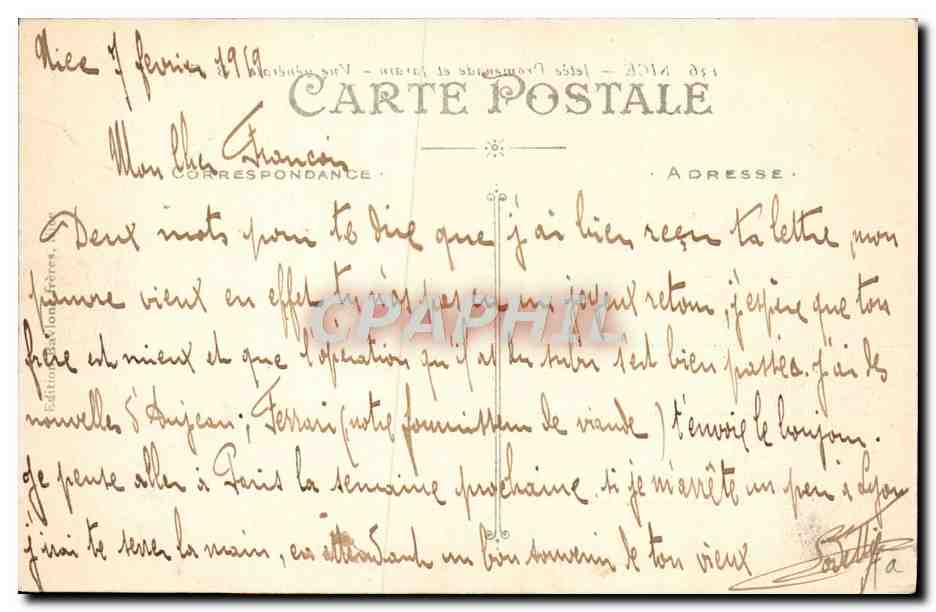 Nice 7 février 1919
136 NICE - Jetée Promenade et Jardin - Vue générale
CARTE POSTALE
Mon cher François
CORRESPONDANCE · · ADRESSE ·
Deux mots pour te dire que j'ai bien reçu ta lettre mon
pauvre vieux en effet tu n'as pas eu un joyeux retour, j'espère que ton
frère est mieux et que l'opération qu'il a dû subir s'est bien passée. J'ai des
nouvelles d'Anjean; Ferrari (notre fournisseur de viande) t'envoie le bonjour.
Je pense aller à Paris la semaine prochaine. si je m'arrête un peu à Lyon
j'irai te serrer la main, en attendant un bon souvenir de ton vieux
Edition Frères, Nice
CPAPHIL